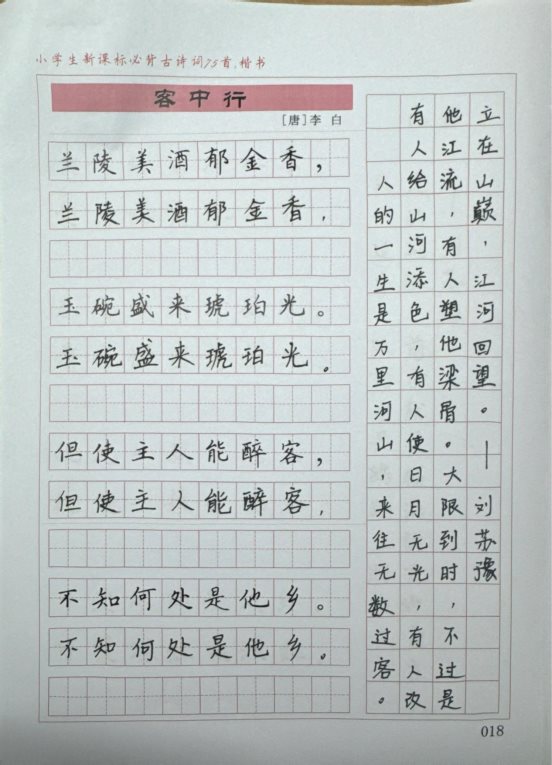 小学生新课标必背古诗词75首.楷书
客中行
[唐]李 白
兰陵美酒郁金香，
兰陵美酒郁金香，
玉碗盛来琥珀光。
玉碗盛来琥珀光。
但使主人能醉客，
但使主人能醉客，
不知何处是他乡。
不知何处是他乡。
人的一生是万里河山，来往无数过客。
有人给山河添色，有人使日月无光，有人改
他江流，有人塑他梁骨。大限到时，不过是
立在山巅，江河回望。—刘苏豫
018